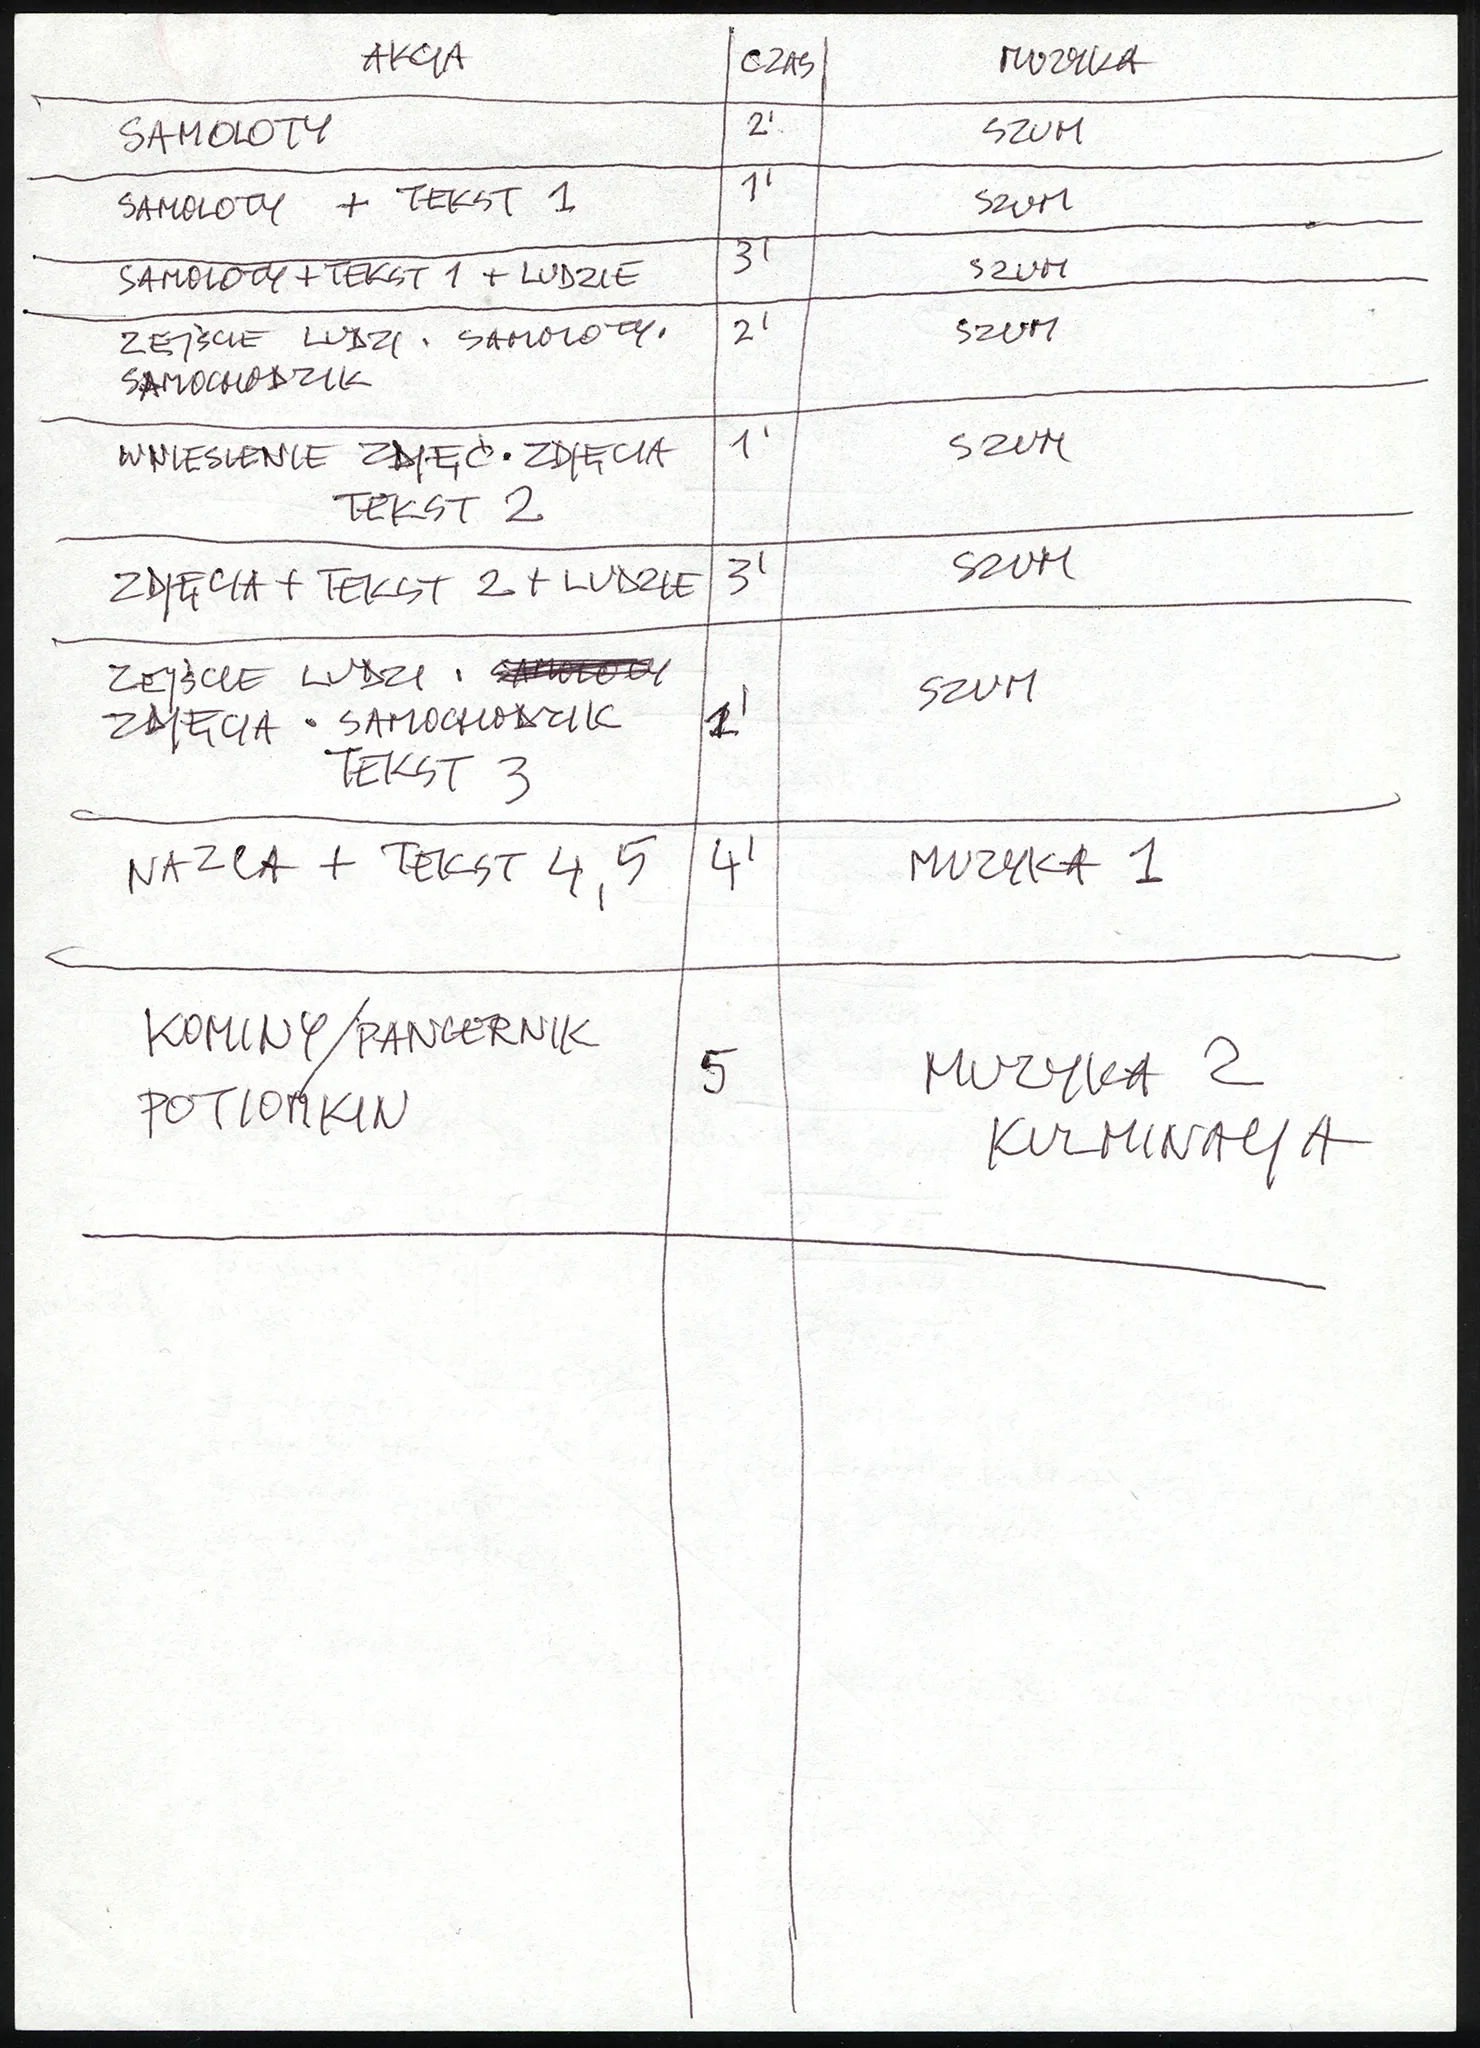 AKCJA CZAS MUZYKA
SAMOLOTY 2' SZUM
SAMOLOTY + TEKST 1 1' SZUM
SAMOLOTY + TEKST 1 + LUDZIE 3' SZUM
ZEJŚCIE LUDZI . SAMOLOTY. 2' SZUM
SAMOCHODZIK
WNIESIENIE ZDJĘĆ . ZDJĘCIA 1' SZUM
TEKST 2
ZDJĘCIA + TEKST 2 + LUDZIE 3' SZUM
ZEJŚCIE LUDZI . SAMOLOTY SZUM
ZDJĘCIA . SAMOCHODZIK 1'
TEKST 3
NAZCA + TEKST 4,5 4' MUZYKA 1
KOMINY/PANCERNIK
POTIOMKIN 5 MUZYKA 2
KULMINACJA